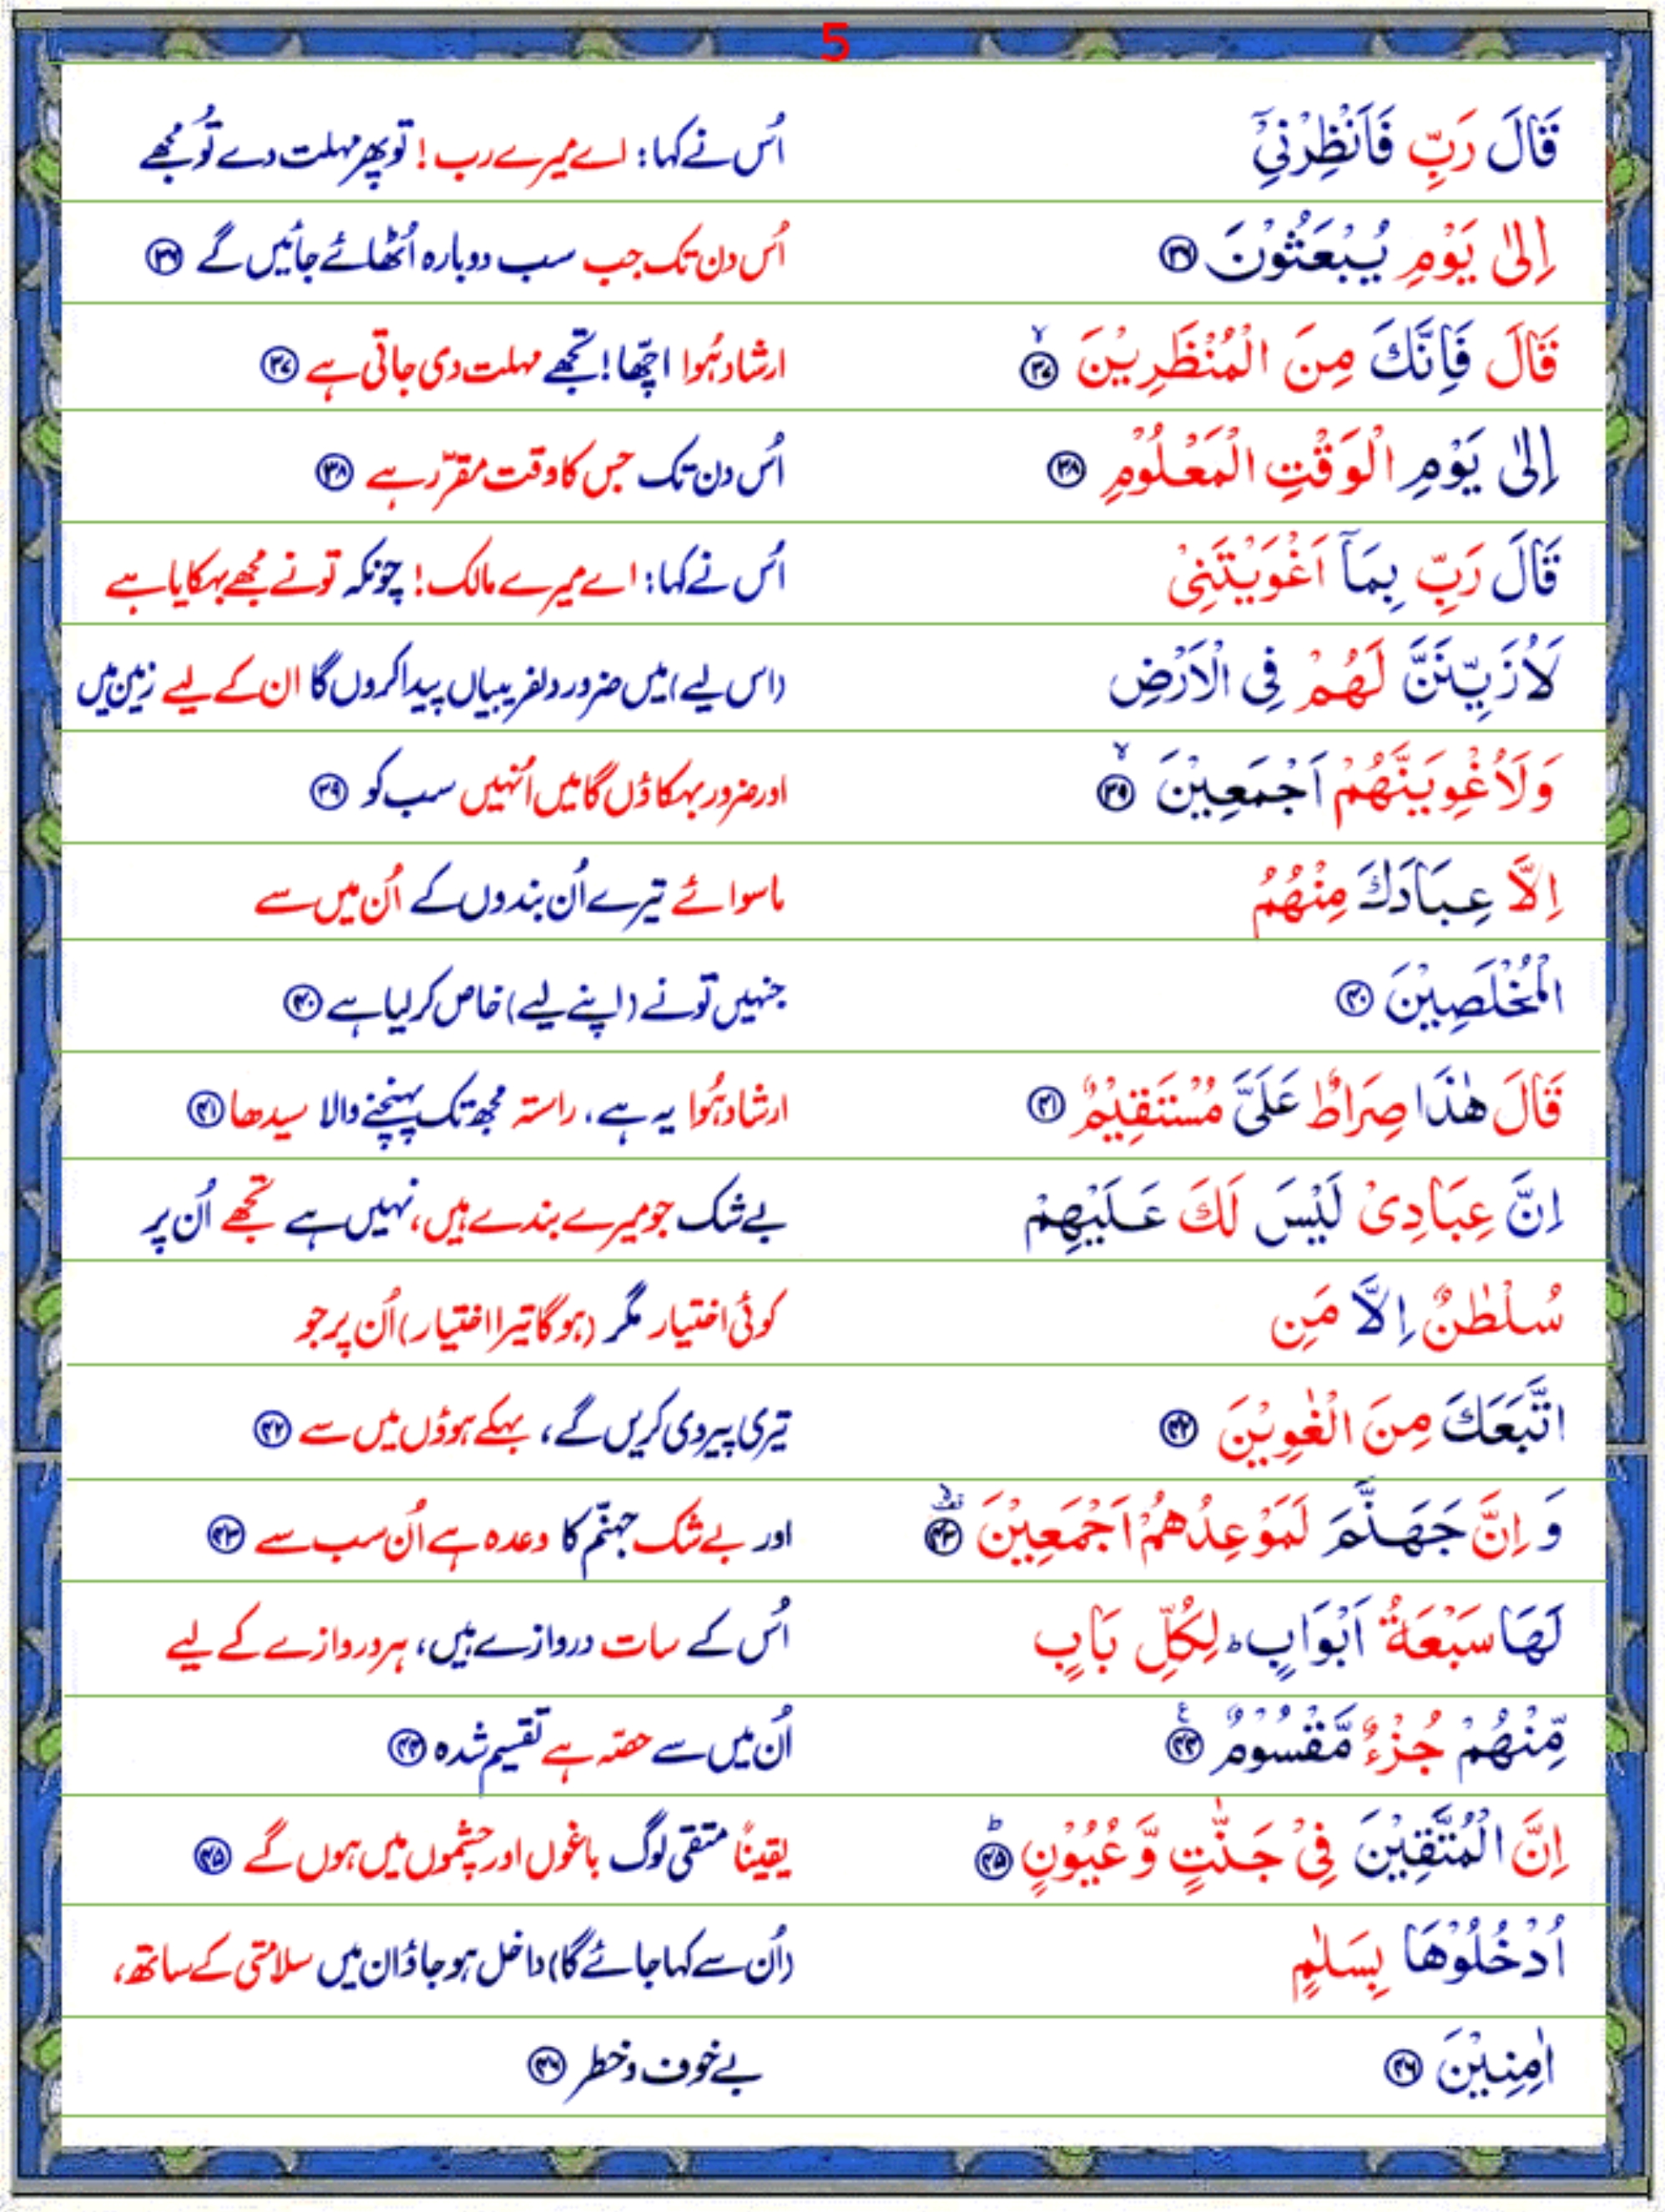 5
قَالَ رَبِّ فَاَنْظِرْنِیْۤ اُس نے کہا: اے میرے رب! تو پھر مہلت دے تُو مُجھے
اِلٰی یَوْمِ یُبْعَثُوْنَ ﴿۳۶﴾ اُس دن تک جب سب دوبارہ اُٹھائے جائیں گے ﴿۳۶﴾
قَالَ فَاِنَّكَ مِنَ الْمُنْظَرِیْنَ ﴿ۙ۳۷﴾ ارشاد ہُوا اچّھا! تجھے مہلت دی جاتی ہے ﴿۳۷﴾
اِلٰی یَوْمِ الْوَقْتِ الْمَعْلُوْمِ ﴿۳۸﴾ اُس دن تک جس کا وقت مقرّر ہے ﴿۳۸﴾
قَالَ رَبِّ بِمَاۤ اَغْوَیْتَنِیْ اُس نے کہا: اے میرے مالک! چونکہ تو نے مُجھے بہکایا ہے
لَاُزَیِّنَنَّ لَهُمْ فِی الْاَرْضِ (اس لیے) میں ضرور دلفریبیاں پیدا کروں گا ان کے لیے زمین میں
وَلَاُغْوِیَنَّهُمْ اَجْمَعِیْنَ ﴿ۙ۳۹﴾ اور ضرور بہکاؤں گا میں اُنہیں سب کو ﴿۳۹﴾
اِلَّا عِبَادَكَ مِنْهُمُ ماسوائے تیرے اُن بندوں کے اُن میں سے
الْمُخْلَصِیْنَ ﴿۴۰﴾ جنہیں تو نے (اپنے لیے) خاص کر لیا ہے ﴿۴۰﴾
قَالَ هٰذَا صِرَاطٌ عَلَیَّ مُسْتَقِیْمٌ ﴿۴۱﴾ ارشاد ہُوا یہ ہے، راستہ مجھ تک پہنچنے والا سیدھا ﴿۴۱﴾
اِنَّ عِبَادِیْ لَیْسَ لَكَ عَلَیْهِمْ بے شک جو میرے بندے ہیں، نہیں ہے تجھے اُن پر
سُلْطٰنٌ اِلَّا مَنِ کوئی اختیار مگر (ہو گا تیرا اختیار) اُن پر جو
اتَّبَعَكَ مِنَ الْغٰوِیْنَ ﴿۴۲﴾ تیری پیروی کریں گے، بہکے ہوؤں میں سے ﴿۴۲﴾
وَ اِنَّ جَهَنَّمَ لَمَوْعِدُهُمْ اَجْمَعِیْنَ ﴿۴۳﴾ اور بے شک جہنّم کا وعدہ ہے اُن سب سے ﴿۴۳﴾
لَهَا سَبْعَةُ اَبْوَابٍ ؕ لِكُلِّ بَابٍ اُس کے سات دروازے ہیں، ہر دروازے کے لیے
مِّنْهُمْ جُزْءٌ مَّقْسُوْمٌ ﴿۴۴﴾ اُن میں سے حصّہ ہے تقسیم شدہ ﴿۴۴﴾
اِنَّ الْمُتَّقِیْنَ فِیْ جَنّٰتٍ وَّ عُیُوْنٍ ﴿ؕ۴۵﴾ یقیناً متقی لوگ باغوں اور چشموں میں ہوں گے ﴿۴۵﴾
اُدْخُلُوْهَا بِسَلٰمٍ (اُن سے کہا جائے گا) داخل ہو جاؤ ان میں سلامتی کے ساتھ،
اٰمِنِیْنَ ﴿۴۶﴾ بے خوف و خطر ﴿۴۶﴾